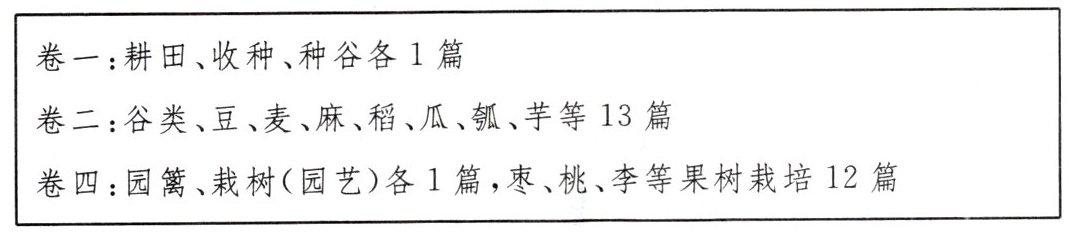 卷一:耕田、收种、种谷各 1 篇
卷二:谷类、豆、麦、麻、稻、瓜、瓠、芋等 13 篇
卷四:园篱、栽树(园艺)各 1 篇,枣、桃、李等果树栽培 12 篇